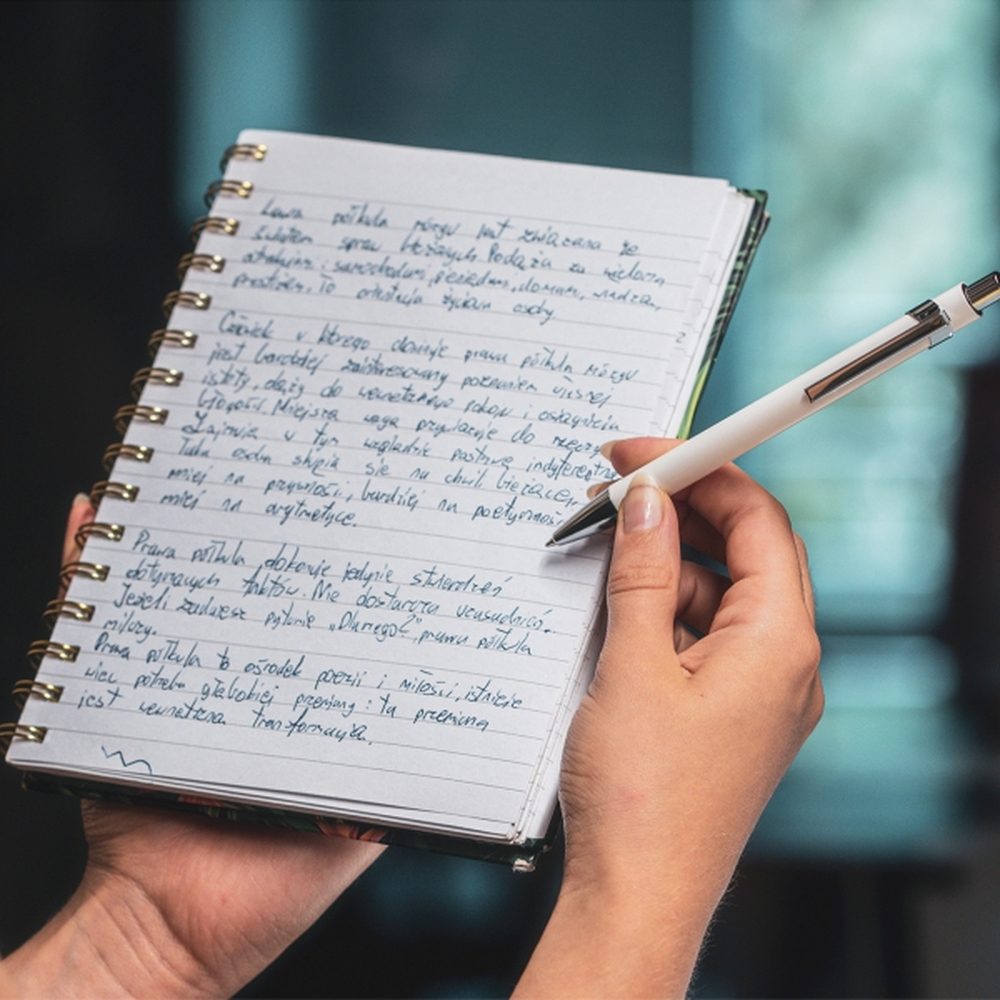 Lewa półkula mózgu jest związana ze
światem spraw bieżących. Podąża za wieloma
atrakcjami: samochodami, pieniędzmi, domami, władzą,
prestiżem. To orientacja życiowa osoby
Człowiek w którego dominuje prawa półkula mózgu
jest bardziej zainteresowany poznaniem własnej
istoty, dąży do wewnętrznego pokoju i osiągnięcia
błogości. Mniejszą wagę przywiązuje do rzeczy.
Zajmuje w tym względzie postawę indyferentną
Taka osoba skupia się na chwili bieżącej,
mniej na przyszłości, bardziej na poetyczności
mniej na arytmetyce.
Prawa półkula dokonuje jedynie stwierdzeń
dotyczących faktów. Nie dostarcza uzasadnień.
Jeżeli zadajesz pytanie „Dlaczego?", prawa półkula
milczy.
Prawa półkula to ośrodek poezji i miłości, istnieje
więc potrzeba głębokiej przemiany: ta przemiana
jest wewnętrzną transformacją.